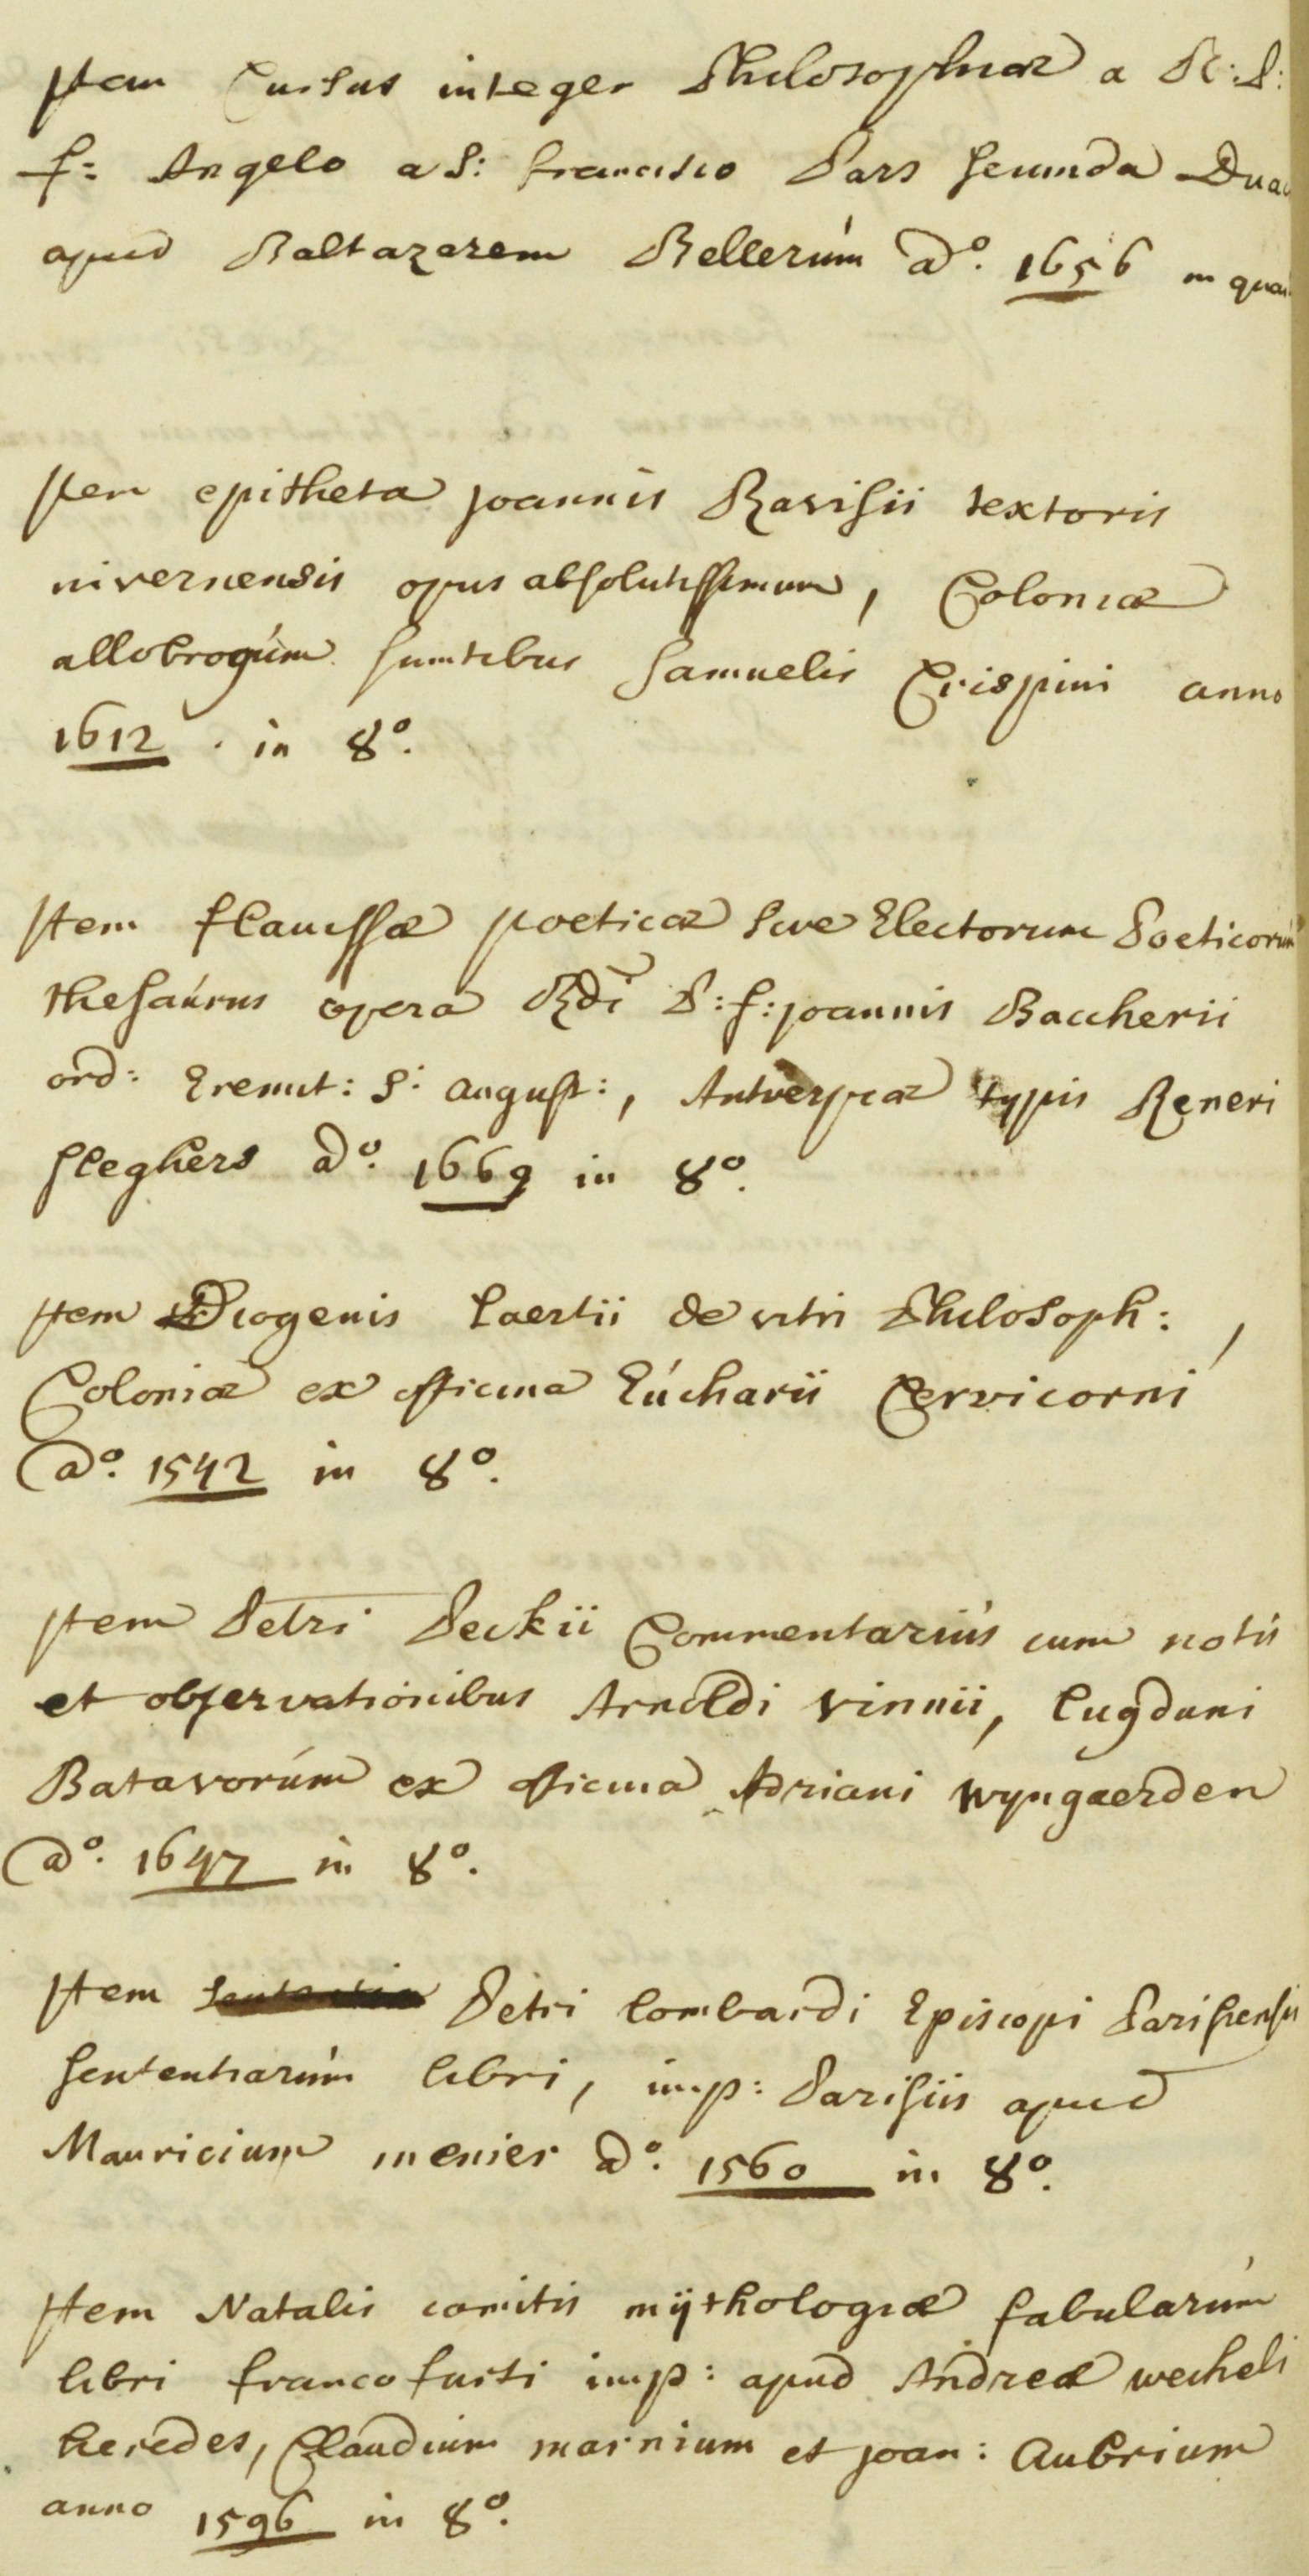 Item Cursus integer Philosophiæ a R: P:
f: Angelo a S: francisco Pars secunda Duac
apud Baltazarem Bellerúm aº. 1656 in quar
Item epitheta joannis Ravisii textoris
nivernensis opus absolutissimum, Coloniæ
allobrogúm sumtibus Samuelis Crispini anno
1612 . in 8º.
Item flavissæ poeticæ sive Electorum Poeticorúm
thesaúrus opera Rdi P: f: joannis Baccherii
ord: Eremit: S: august:, Antverpiæ typis Reneri
sleghers aº. 1669 in 8º.
Item Diogenis laertii de vitis Philosoph: ,
Coloniæ ex officina Eúcharii Cervicorni
aº. 1542 in 8º.
Item Petri Peckii Commentariús cum notis
et observationibus Arnoldi vinnii, lugduni
Batavorúm ex officina Adriani wyngaerden
aº. 1647 in 8º.
Item Petri lombardi Episcopi Parisiensis
sententiarúm libri, imp: Parisiis apud
Mauricium menier aº. 1560 in 8º.
Item Natalis comitis mÿthologiæ fabularúm
libri francofurti imp: apud Andreæ wecheli
heredes, Claudium marnium et joan: Aubrium
anno 1596 in 8º.